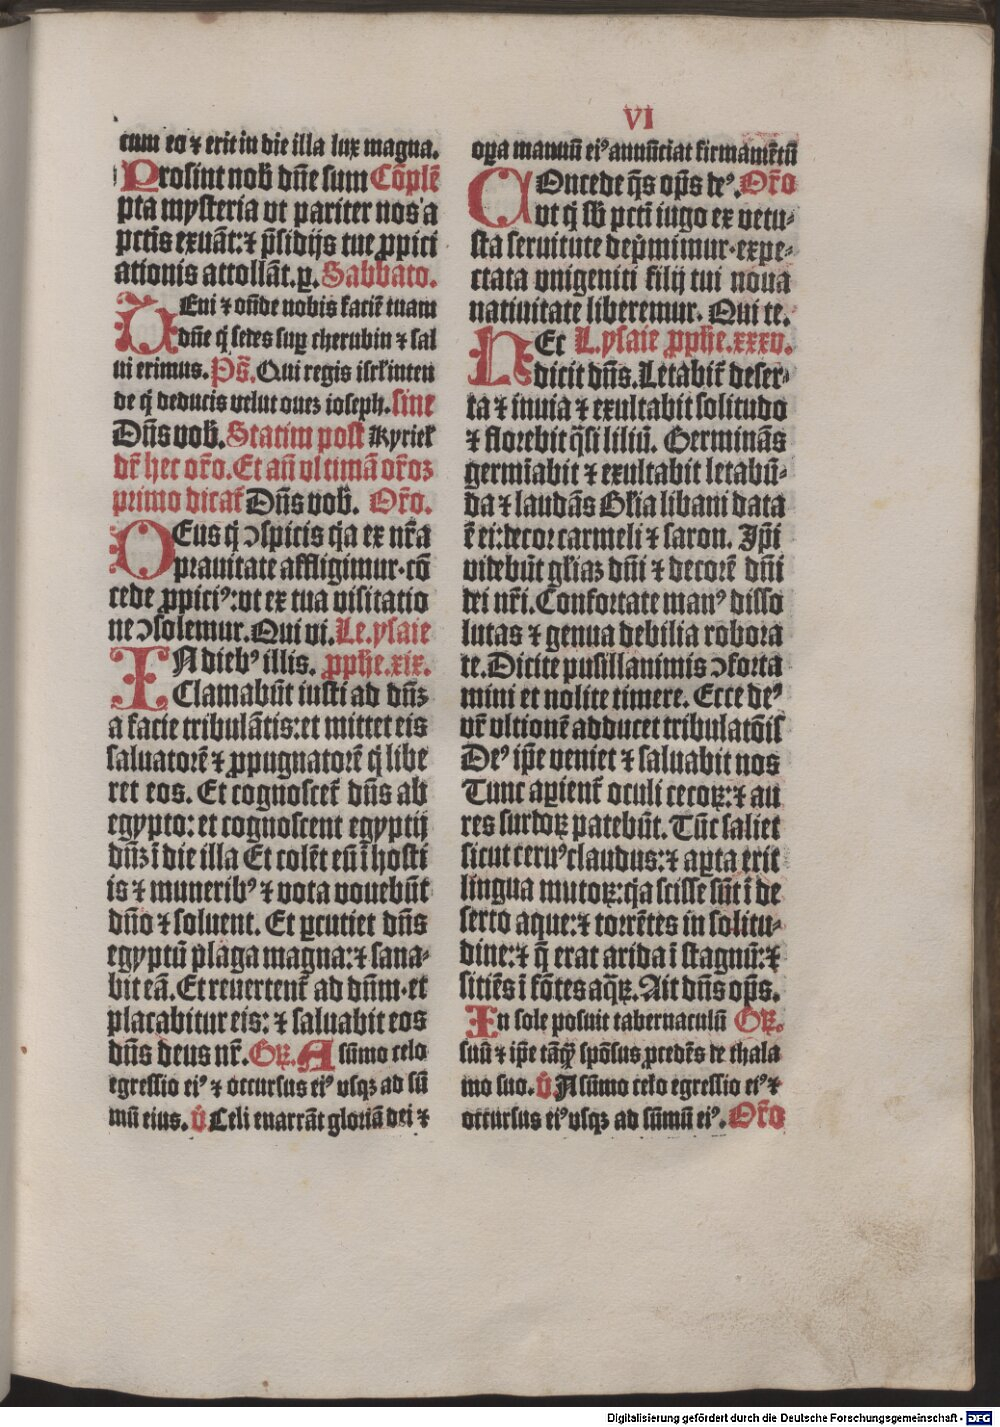 VI
cum eo ⁊ erit in die illa lux magna.
Prosint nob̄ dn̄e sum Cōplē
pta mysteria vt pariter nos a
pctīs exuāt: ⁊ p̄sidijs tue ꝓpici
ationis attollāt. ꝑ. Sabbato.
Ueni ⁊ on̄de nobis faciē tuam
dn̄e q̄ sedes suꝑ cherubin ⁊ sal
ui erimus. Ps̄. Qui regis isrl̄ inten
de q̄ deducis velut ouez ioseph. sine
Dn̄s vob̄. Statim post Kyriel̄
dr̄ hec or̄o. Et an̄ vltimā or̄oz
primo dicat̄ Dn̄s vob̄. Or̄o.
DEus q̄ ↄspicis q̄a ex nr̄a
prauitate affligimur. cō
cede ꝓpiciꝰ: vt ex tua visitatio
ne ↄsolemur. Qui vi. Le. ysaie
IN diebꝰ illis. ꝓphe. xix.
Clamabūt iusti ad dn̄z
a facie tribulātis: et mittet eis
saluatorē ⁊ ꝓpugnatorē q̄ libe
ret eos. Et cognoscet̄ dn̄s ab
egypto: et cognoscent egyptij
dn̄z ī die illa Et colēt eū ī hosti
is ⁊ muneribꝰ ⁊ vota vouebūt
dn̄o ⁊ soluent. Et ꝑcutiet dn̄s
egyptū plaga magna: ⁊ sana-
bit eā. Et reuertent̄ ad dn̄m. et
placabitur eis: ⁊ saluabit eos
dn̄s deus nr̄. Gꝝ. A sūmo celo
egressio eiꝰ ⁊ occursus eiꝰ vsqꝫ ad sū
mū eius. V̊ Celi enarrāt gloriā dei ⁊
oꝑa manuū eiꝰ annūciat firmamētū
COncede q̄s op̄s deꝰ. Or̄o
vt q̄ sb̄ pctī iugo ex vetu-
sta seruitute dep̄mimur. expe-
ctata vnigeniti filij tui noua
natiuitate liberemur. Qui te.
HEc L. ysaie ꝓphe. xxxv.
dicit dn̄s. Letabit̄ deser-
ta ⁊ inuia ⁊ exultabit solitudo
⁊ florebit q̄si liliū. Germināns
germīabit ⁊ exultabit letabū-
da ⁊ laudāns Glīa libani data
ē ei: decor carmeli ⁊ saron. Ip̄i
videbūt glīaz dn̄i ⁊ decorē dn̄i
dei nr̄i. Confortate manꝰ disso
lutas ⁊ genua debilia robora
te. Dicite pusillanimis ↄforta
mini et nolite timere. Ecce deꝰ
vr̄ vltionē adducet tribulatōis
Deꝰ ip̄e veniet ⁊ saluabit nos
Tunc aꝑient̄ oculi cecoꝝ: ⁊ au
res surdoꝝ patebūt. Tūc saliet
sicut ceruꝰ claudus: ⁊ aꝑta erit
lingua mutoꝝ: q̄a scisse sūt ī de
serto aque: ⁊ torrētes in solitu-
dine: ⁊ q̄ erat arida ī stagnū: ⁊
sitiēs ī fōtes aq̄ꝝ. Ait dn̄s op̄s.
In sole posuit tabernaculū Gꝝ.
suū ⁊ ip̄e tāqꝫ spōsus ꝓcedēs de thala
mo suo. V̊ A sūmo celo egressio eiꝰ ⁊
occursus eiꝰ vsqꝫ ad sūmū eiꝰ. Or̄o
Digitalisierung gefördert durch die Deutsche Forschungsgemeinschaft - DFG